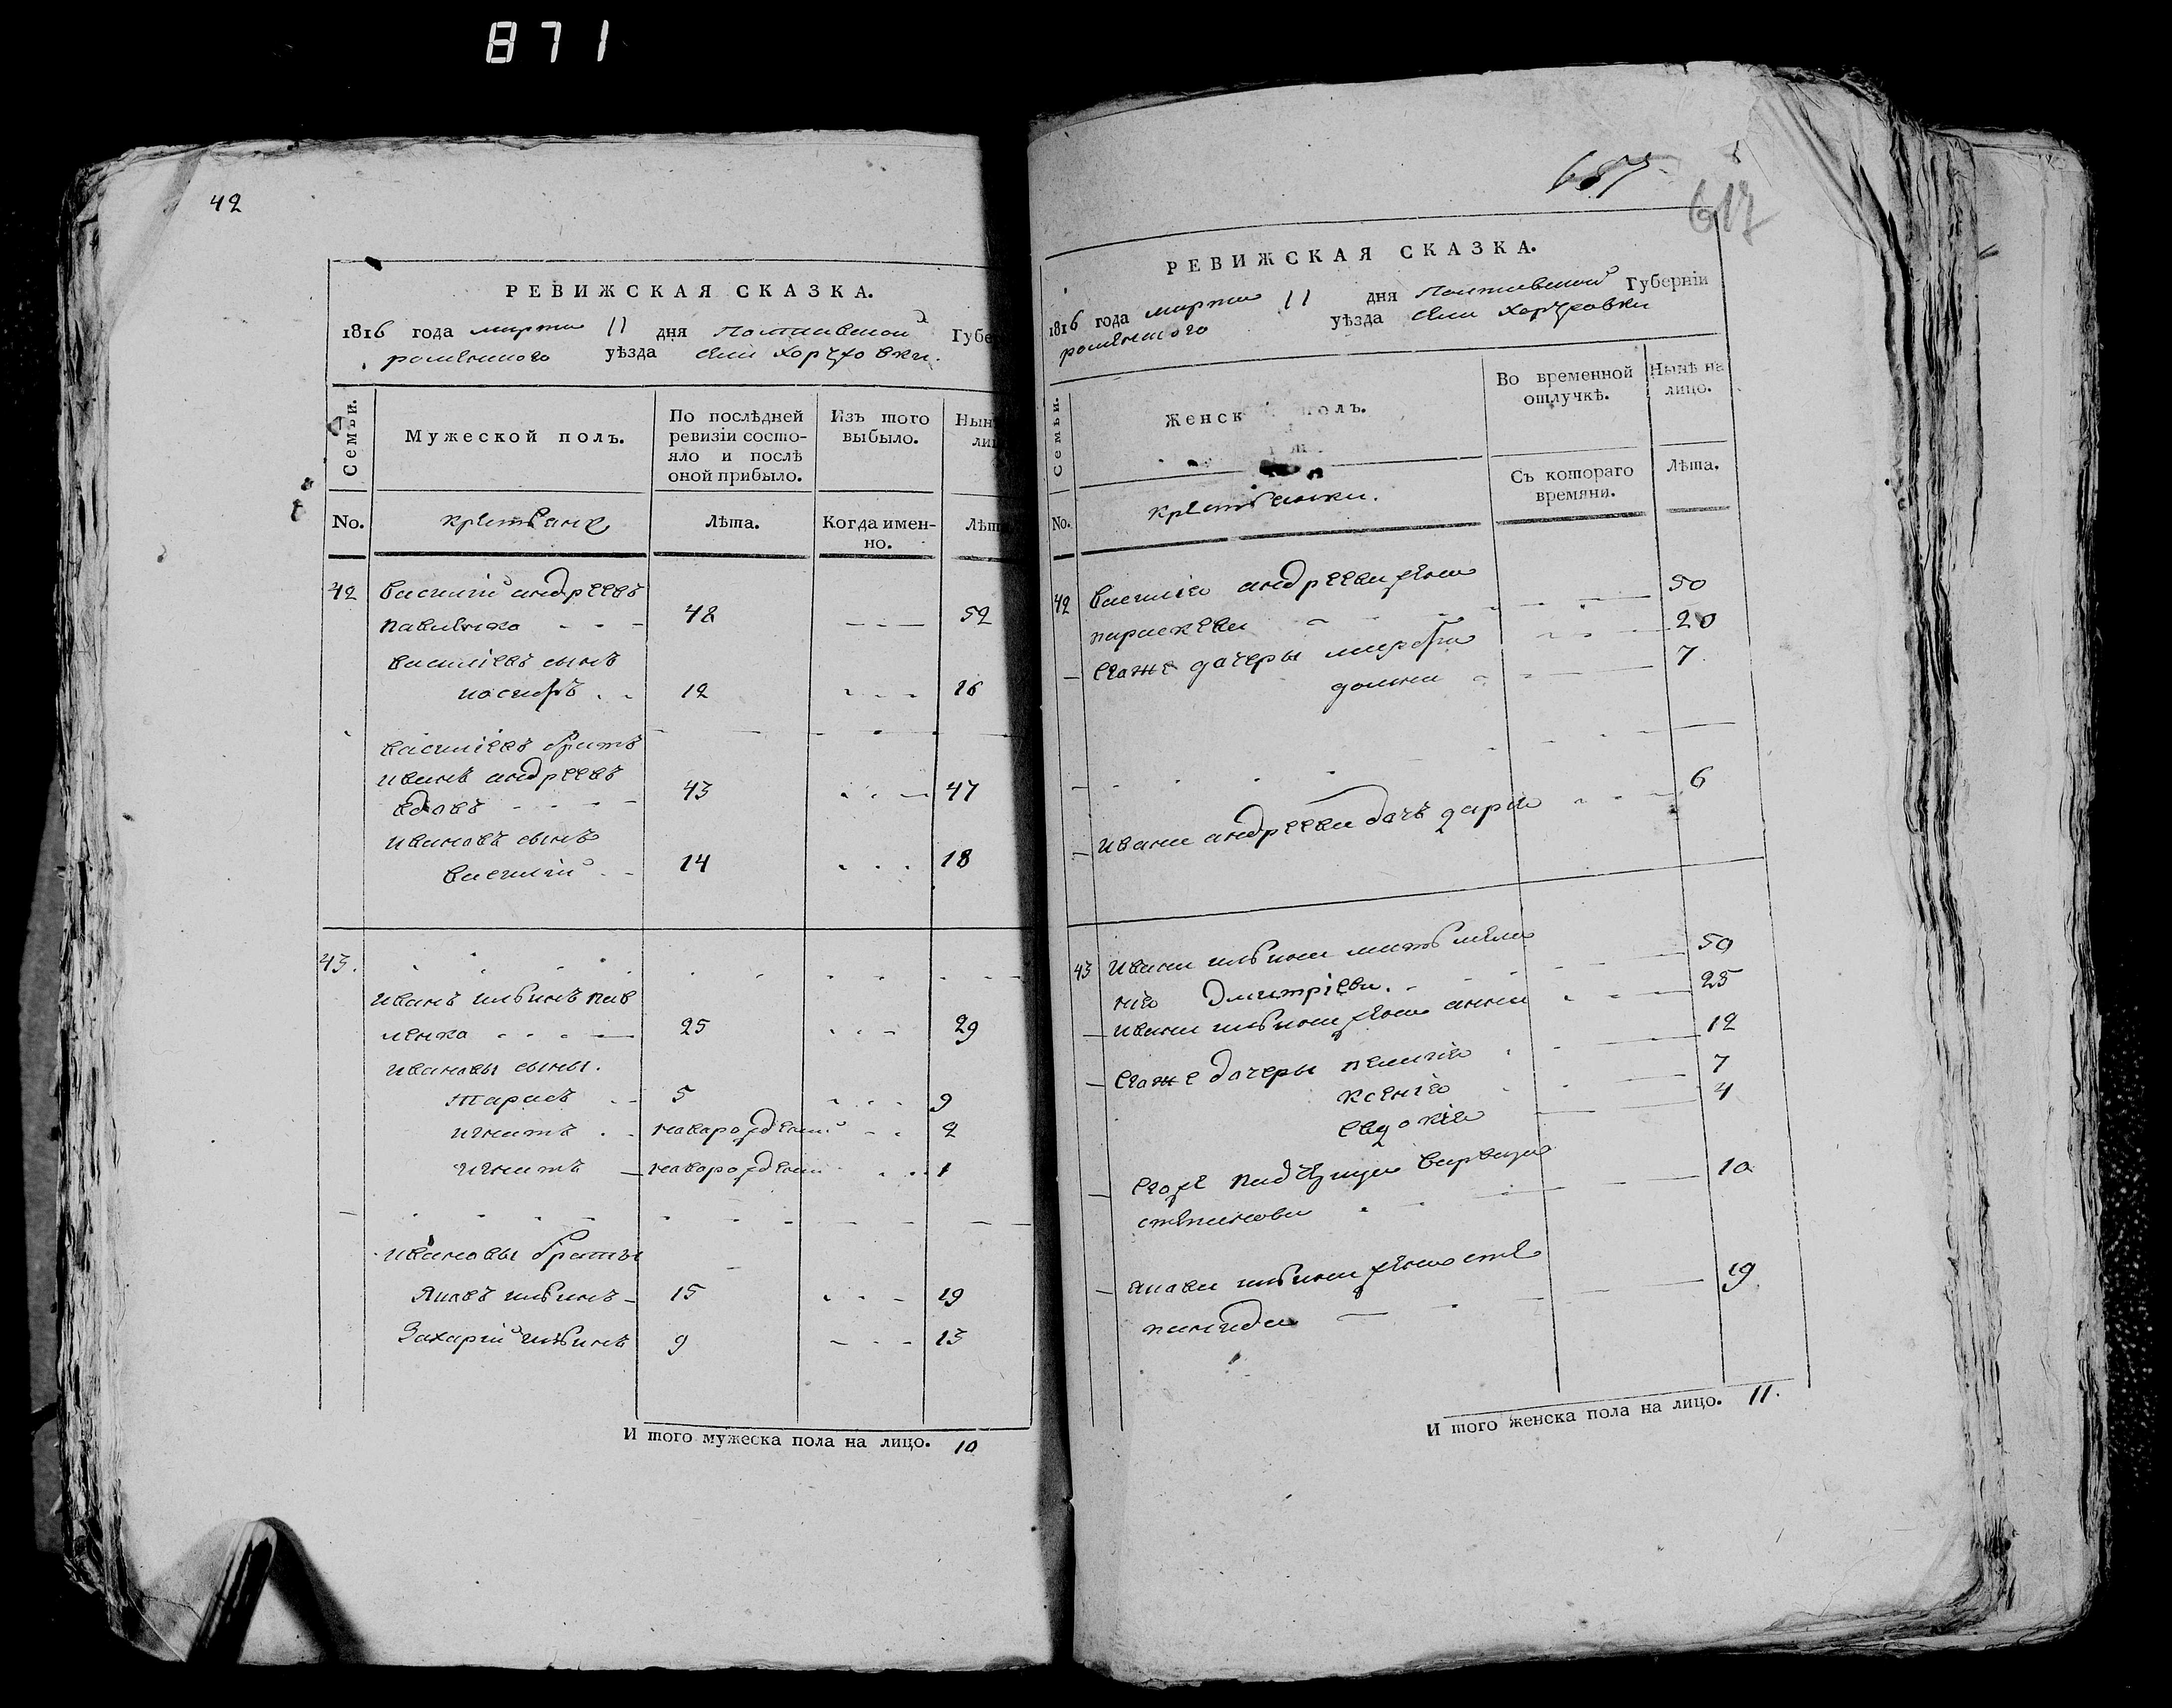 871
42
РЕВИЖСКАЯ СКАЗКА.
1816 года марта 11 дня Полтавской Губе
роменского уѣзда села Хоружовки.
Семьи.
Мужеской полъ.
По послѣдней
ревизіи состо-
яло и послѣ
оной прибыло.
Изъ того
выбыло.
Нын
ли
No.
крестьяне
Лѣта.
Когда имен-
но.
Лѣт
42 василий андреевъ
павленко - - - 48 - - - 52
василіевъ сынъ
иосифъ . . 12 - - - 16
василіевъ братъ
иванъ андреевъ
вдовъ - - - - 43 - - - 47
ивановъ сынъ
василий . - 14 - - - 18
43.
иванъ ильинъ пав
ленко - - - 25 - - - 29
ивановы сыны.
тарасъ - - 5 - - - 9
игнатъ . - новорожденый - - 2
игнатъ - новорожденый - - 1
ивановы братья
Яковъ ильинъ - 15 - - - 19
Захарий ильинъ 9 - - - 13
И того мужеска пола на лицо. 10
687
617
РЕВИЖСКАЯ СКАЗКА.
1816 года марта 11 дня Полтавской Губерніи
роменского уѣзда села Хоружовки
Семьи.
Женск полъ.
Во временной
отлучкѣ.
Нынѣ на
лицо.
No.
крестьянки.
Съ котораго
времяни.
Лѣта.
42 василія андреева жена
параскева - - - 50
- егоже дочеры марфа - - - 20
домна - - - 7
- ивана андреева дочь дарія - - - 6
43 ивана ильина мать мела
нія Дмитріева. - - - 50
- ивана ильина жена анна - - - 25
- егоже дочеры пелагія - - 12
ксенія - - 7
евдокія - - 4
- егоже падчерица варвара
степанова - - - 10
- якова ильина жена сте
панида - - - 19
И того женска пола на лицо. 11.